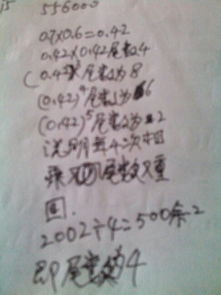 15 556000
0.7×0.6=0.42
0.42×0.42尾数4
(0.42)³尾数为8
(0.42)⁴尾数为6
(0.42)⁵尾数为2
说明每4次相
乘 尾数又重
回.
2002÷4=500余2
即尾数为4